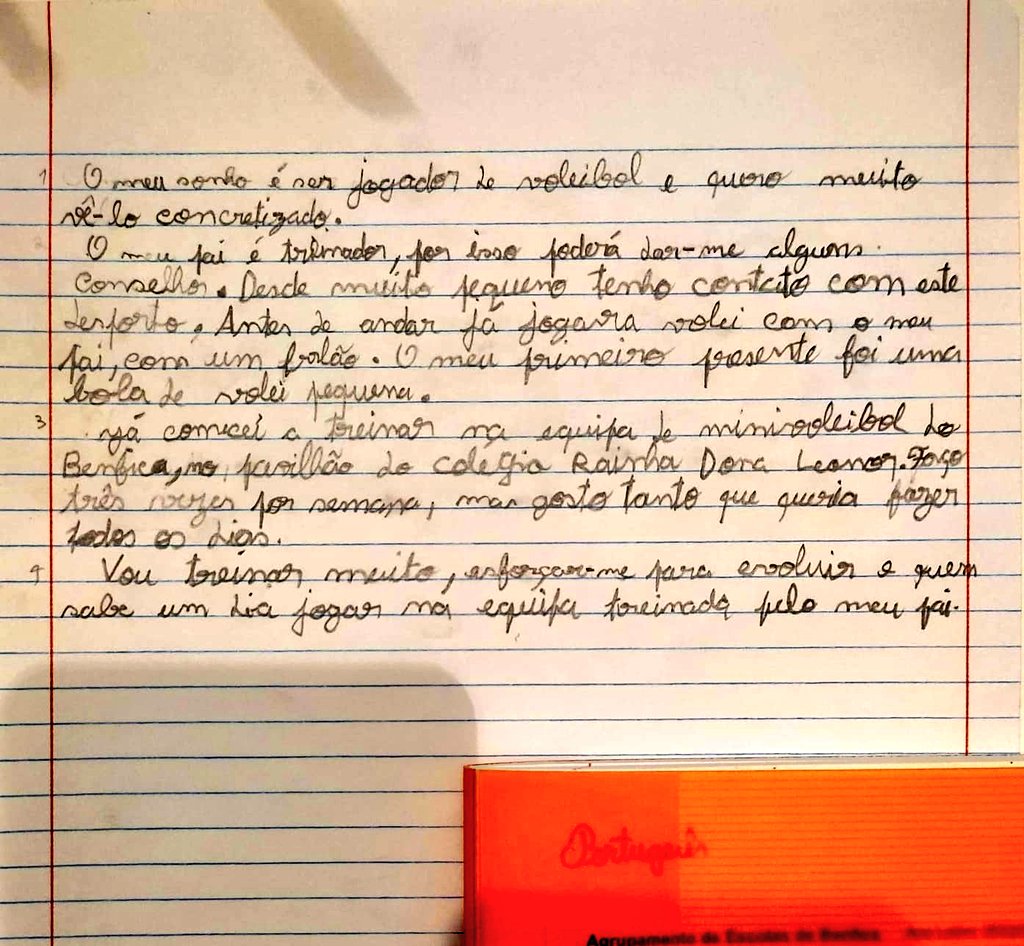 1 O meu sonho é ser jogador de voleibol e quero muito
vê-lo concretizado.
O meu pai é treinador, por isso poderá dar-me alguns
Conselho. Desde muito pequeno tenho contato com este
desporto. Antes de andar já jogava volei com o meu
pai, com um balão. O meu primeiro presente foi uma
bola de volei pequena.
3 Já comecei a treinar na equipa de minivoleibol do
Benfica, no pavilhão do colégio Rainha Dona Leonor. Faço
três vezes por semana, mas gosto tanto que queria fazer
todos os dias.
4 Vou treinar muito, esforçar-me para evoluir e quem
sabe um dia jogar na equipa treinada pelo meu pai.
Português
Agrupamento de Escolas de Benfica